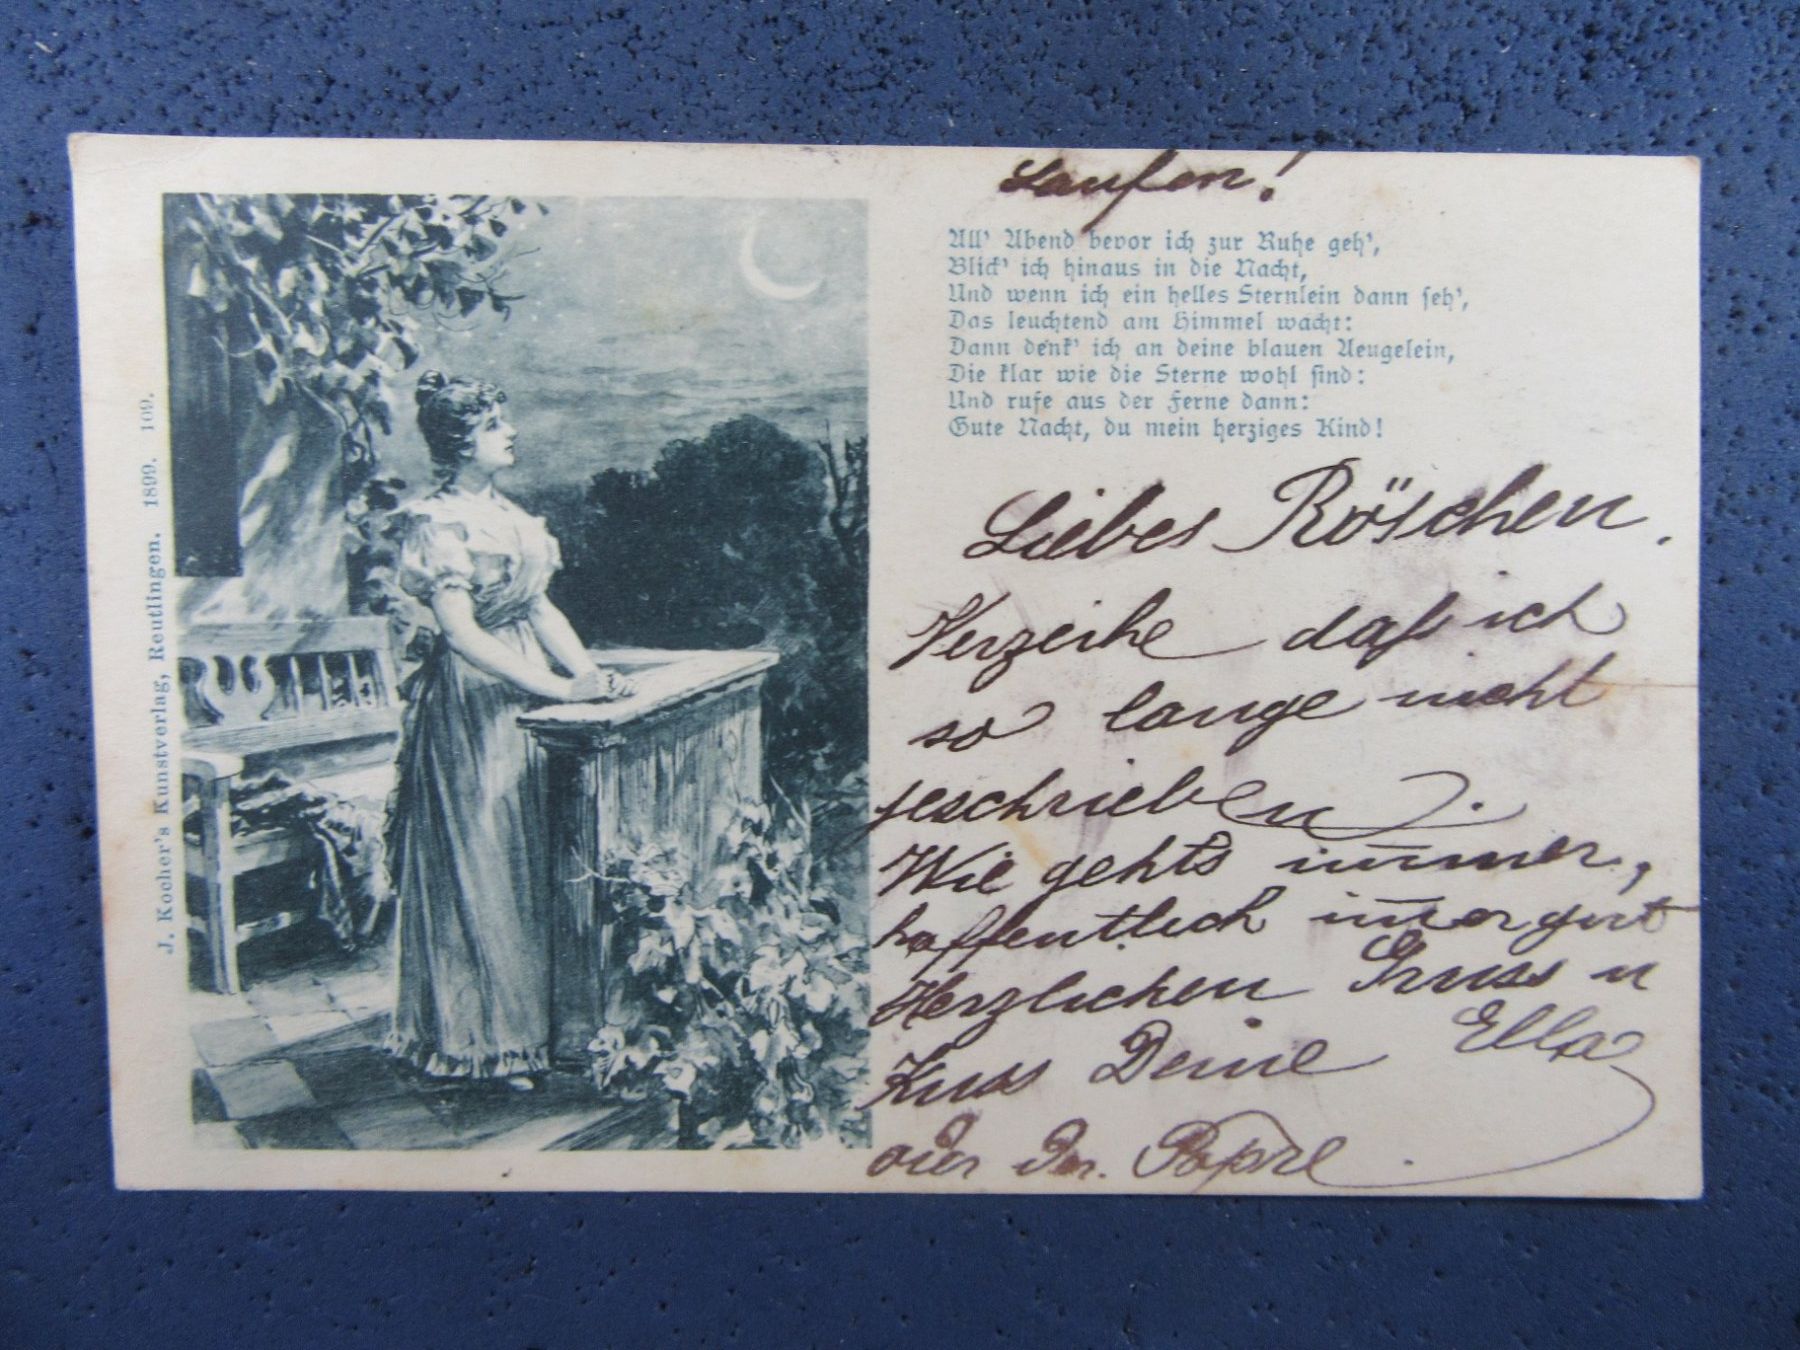 Laufen!
All' Abend bevor ich zur Ruhe geh',
Blick' ich hinaus in die Nacht,
Und wenn ich ein helles Sternlein dann seh',
Das leuchtend am Himmel wacht:
Dann denk' ich an deine blauen Aeugelein,
Die klar wie die Sterne wohl sind:
Und rufe aus der Ferne dann:
Gute Nacht, du mein herziges Kind!
Liebes Röschen.
Verzeihe daß ich
so lange nicht
geschrieben.
Wie gehts immer,
hoffentlich im̄er gut
Herzlichen Gruss u
Kuss Deine Ella
J. Kocher's Kunstverlag, Reutlingen. 1899. 109.